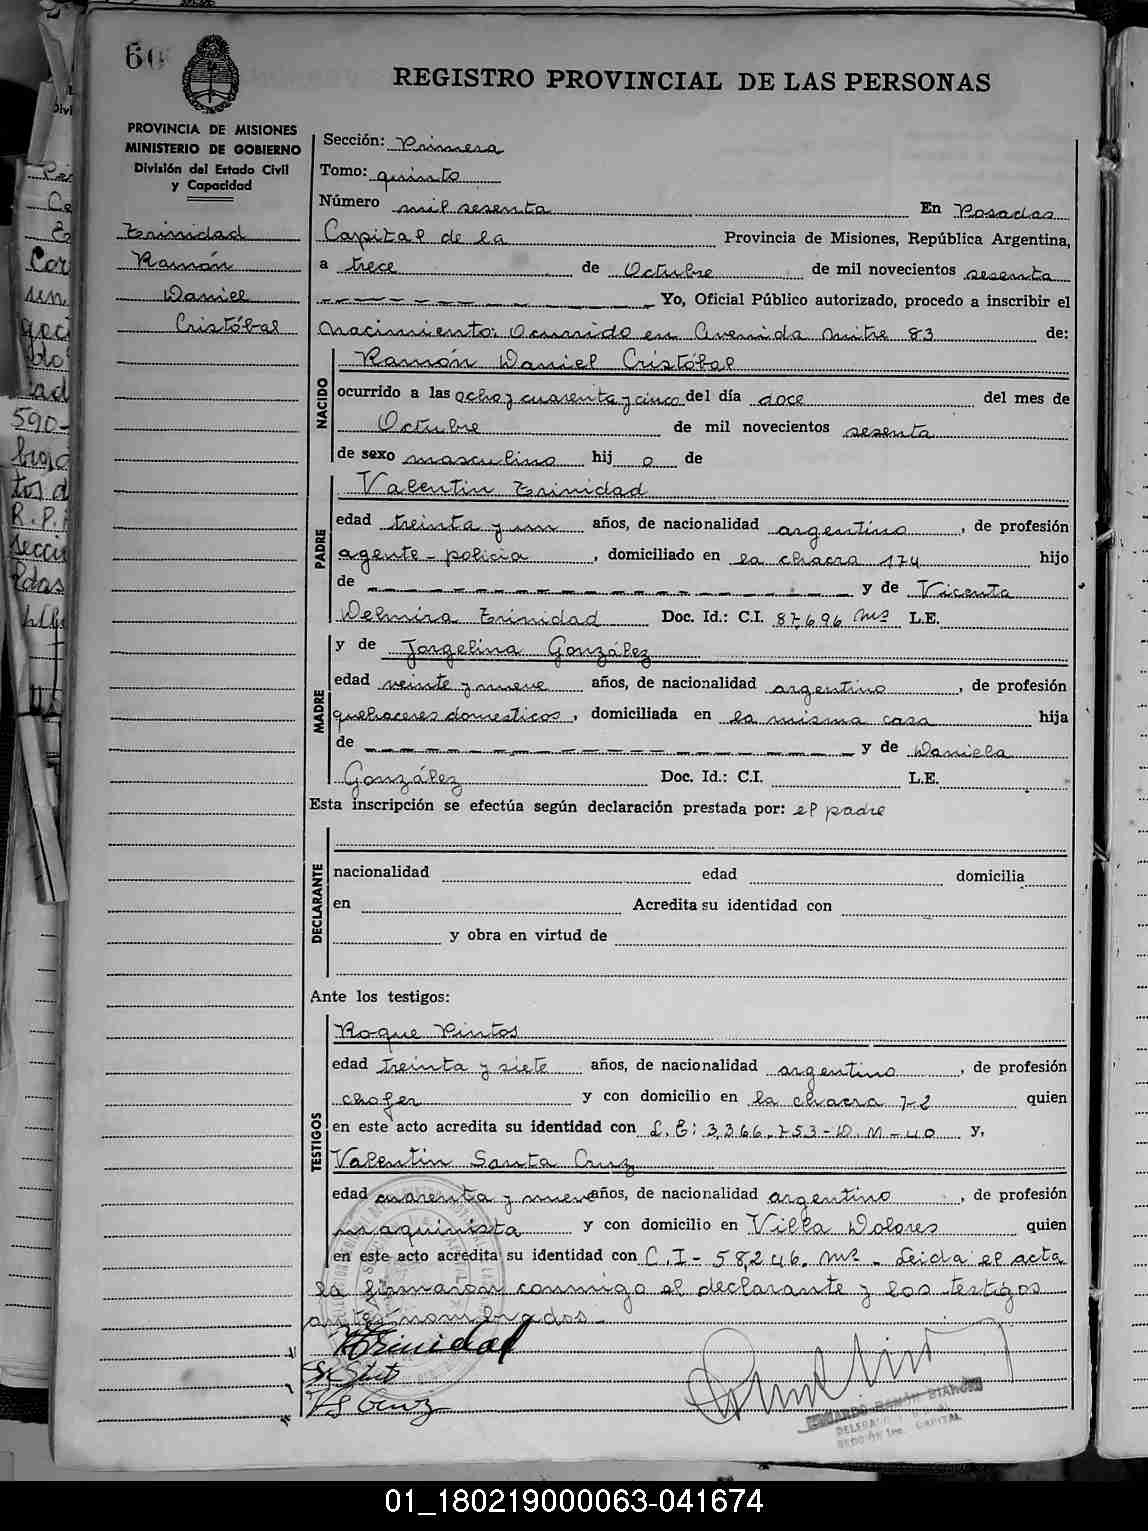 60
REGISTRO PROVINCIAL DE LAS PERSONAS
PROVINCIA DE MISIONES
MINISTERIO DE GOBIERNO
División del Estado Civil
y Capacidad
Trinidad
Ramón
Daniel
Cristóbal
Sección: Primera
Tomo: quinto
Número mil sesenta En Posadas
Capital de la Provincia de Misiones, República Argentina,
a trece de Octubre de mil novecientos sesenta
Yo, Oficial Público autorizado, procedo a inscribir el
nacimiento: Ocurrido en Avenida Mitre 83 de:
NACIDO
Ramón Daniel Cristóbal
ocurrido a las ocho y cuarenta y cinco del día doce del mes de
Octubre de mil novecientos sesenta
de sexo masculino hij o de
PADRE
Valentin Trinidad
edad treinta y un años, de nacionalidad argentino, de profesión
agente-policia, domiciliado en la chacra 174 hijo
de y de Vicenta
Delmira Trinidad Doc. Id.: C.I. 87.696 Mns L.E.
MADRE
y de Jorgelina González
edad veinte y nueve años, de nacionalidad argentino, de profesión
quehaceres domesticos, domiciliada en la misma casa hija
de y de Daniela
González Doc. Id.: C.I. L.E.
Esta inscripción se efectúa según declaración prestada por: el padre
DECLARANTE
nacionalidad edad domicilia
en Acredita su identidad con
y obra en virtud de
Ante los testigos:
TESTIGOS
Roque Pintos
edad treinta y siete años, de nacionalidad argentino, de profesión
chofer y con domicilio en la chacra 72 quien
en este acto acredita su identidad con L.E: 3.366.753-D.M-40 y,
Valentin Santa Cruz
edad cuarenta y nueve años, de nacionalidad argentino, de profesión
maquinista y con domicilio en Villa Dolores quien
en este acto acredita su identidad con C.I-58.246. Mns - Leida el acta
la firmaron conmigo el declarante y los testigos
antes nombrados.-
VTrinidad
VSCruz
EDUARDO RAMÓN
DELEGADO
SECCIÓN 1ra. CAPITAL
01_180219000063-041674